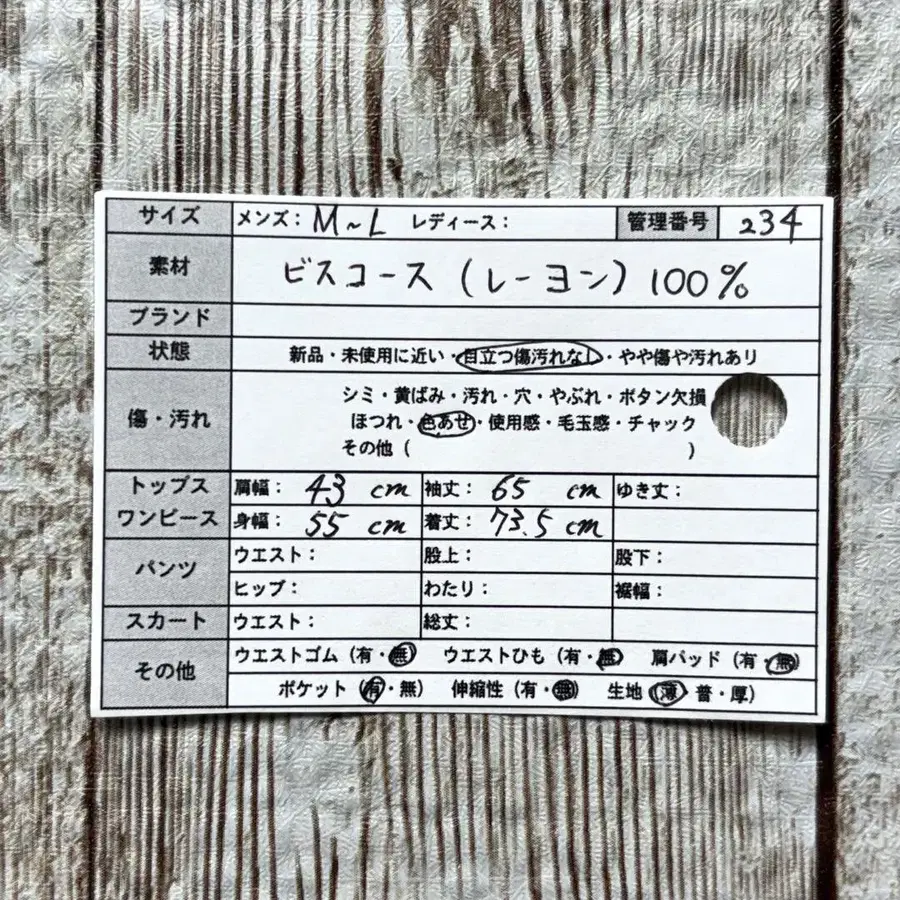 サイズ メンズ: M~L レディース: 管理番号 234
素材 ビスコース(レーヨン)100%
ブランド
状態 新品・未使用に近い・目立つ傷汚れなし・やや傷や汚れあり
傷・汚れ シミ・黄ばみ・汚れ・穴・やぶれ・ボタン欠損
ほつれ・色あせ・使用感・毛玉感・チャック
その他( )
トップス 肩幅: 43 cm 袖丈: 65 cm ゆき丈:
ワンピース 身幅: 55 cm 着丈: 73.5 cm
パンツ ウエスト: 股上: 股下:
ヒップ: わたり: 裾幅:
スカート ウエスト: 総丈:
その他 ウエストゴム(有・無) ウエストひも(有・無) 肩パッド(有・無)
ポケット(有・無) 伸縮性(有・無) 生地(薄 普・厚)